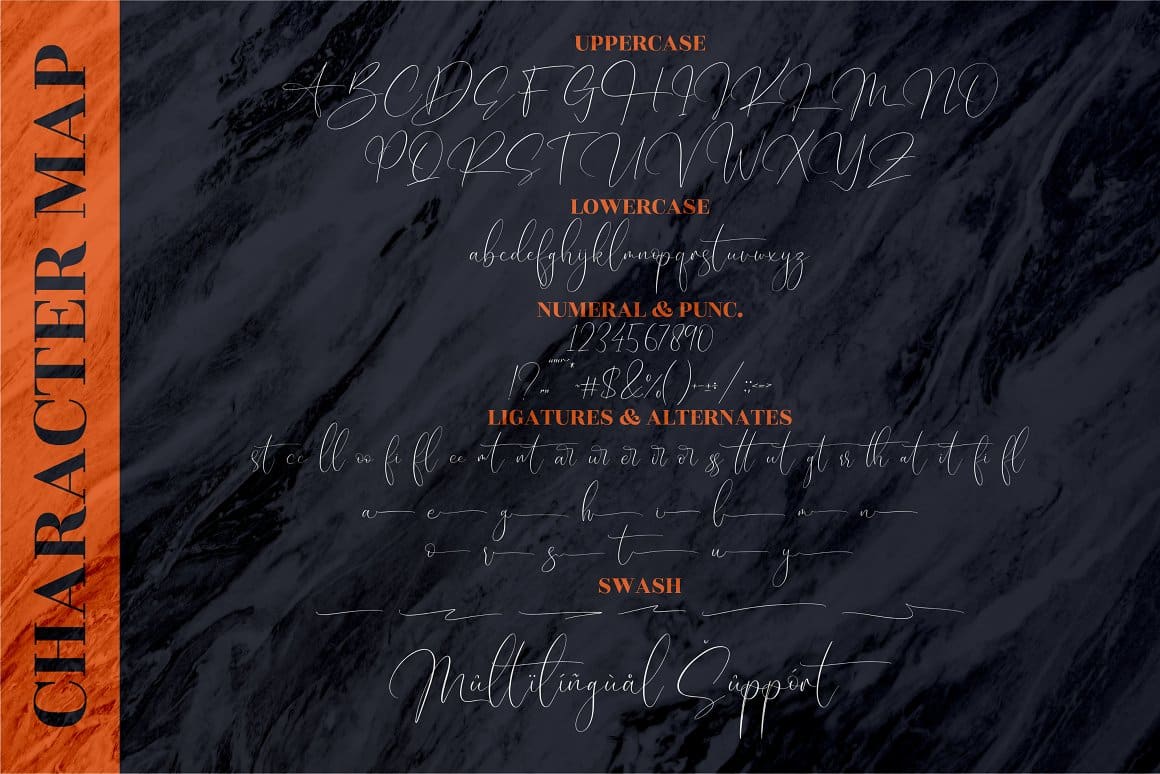 CHARACTER MAP
UPPERCASE
ABCDEFGHIJKLMNO
PQRSTUVWXYZ
LOWERCASE
abcdefghijklmnopqrstuvwxyz
NUMERAL & PUNC.
1234567890
#$&%()+-±÷/:;<=>
LIGATURES & ALTERNATES
st cc ll oo fi fl ee mt nt ar ur er ir or ss tt ut gt rr th at it fi fl
a e g h i l m n
o r s t u y
SWASH
Mûltïlíñgùål Šûppórt